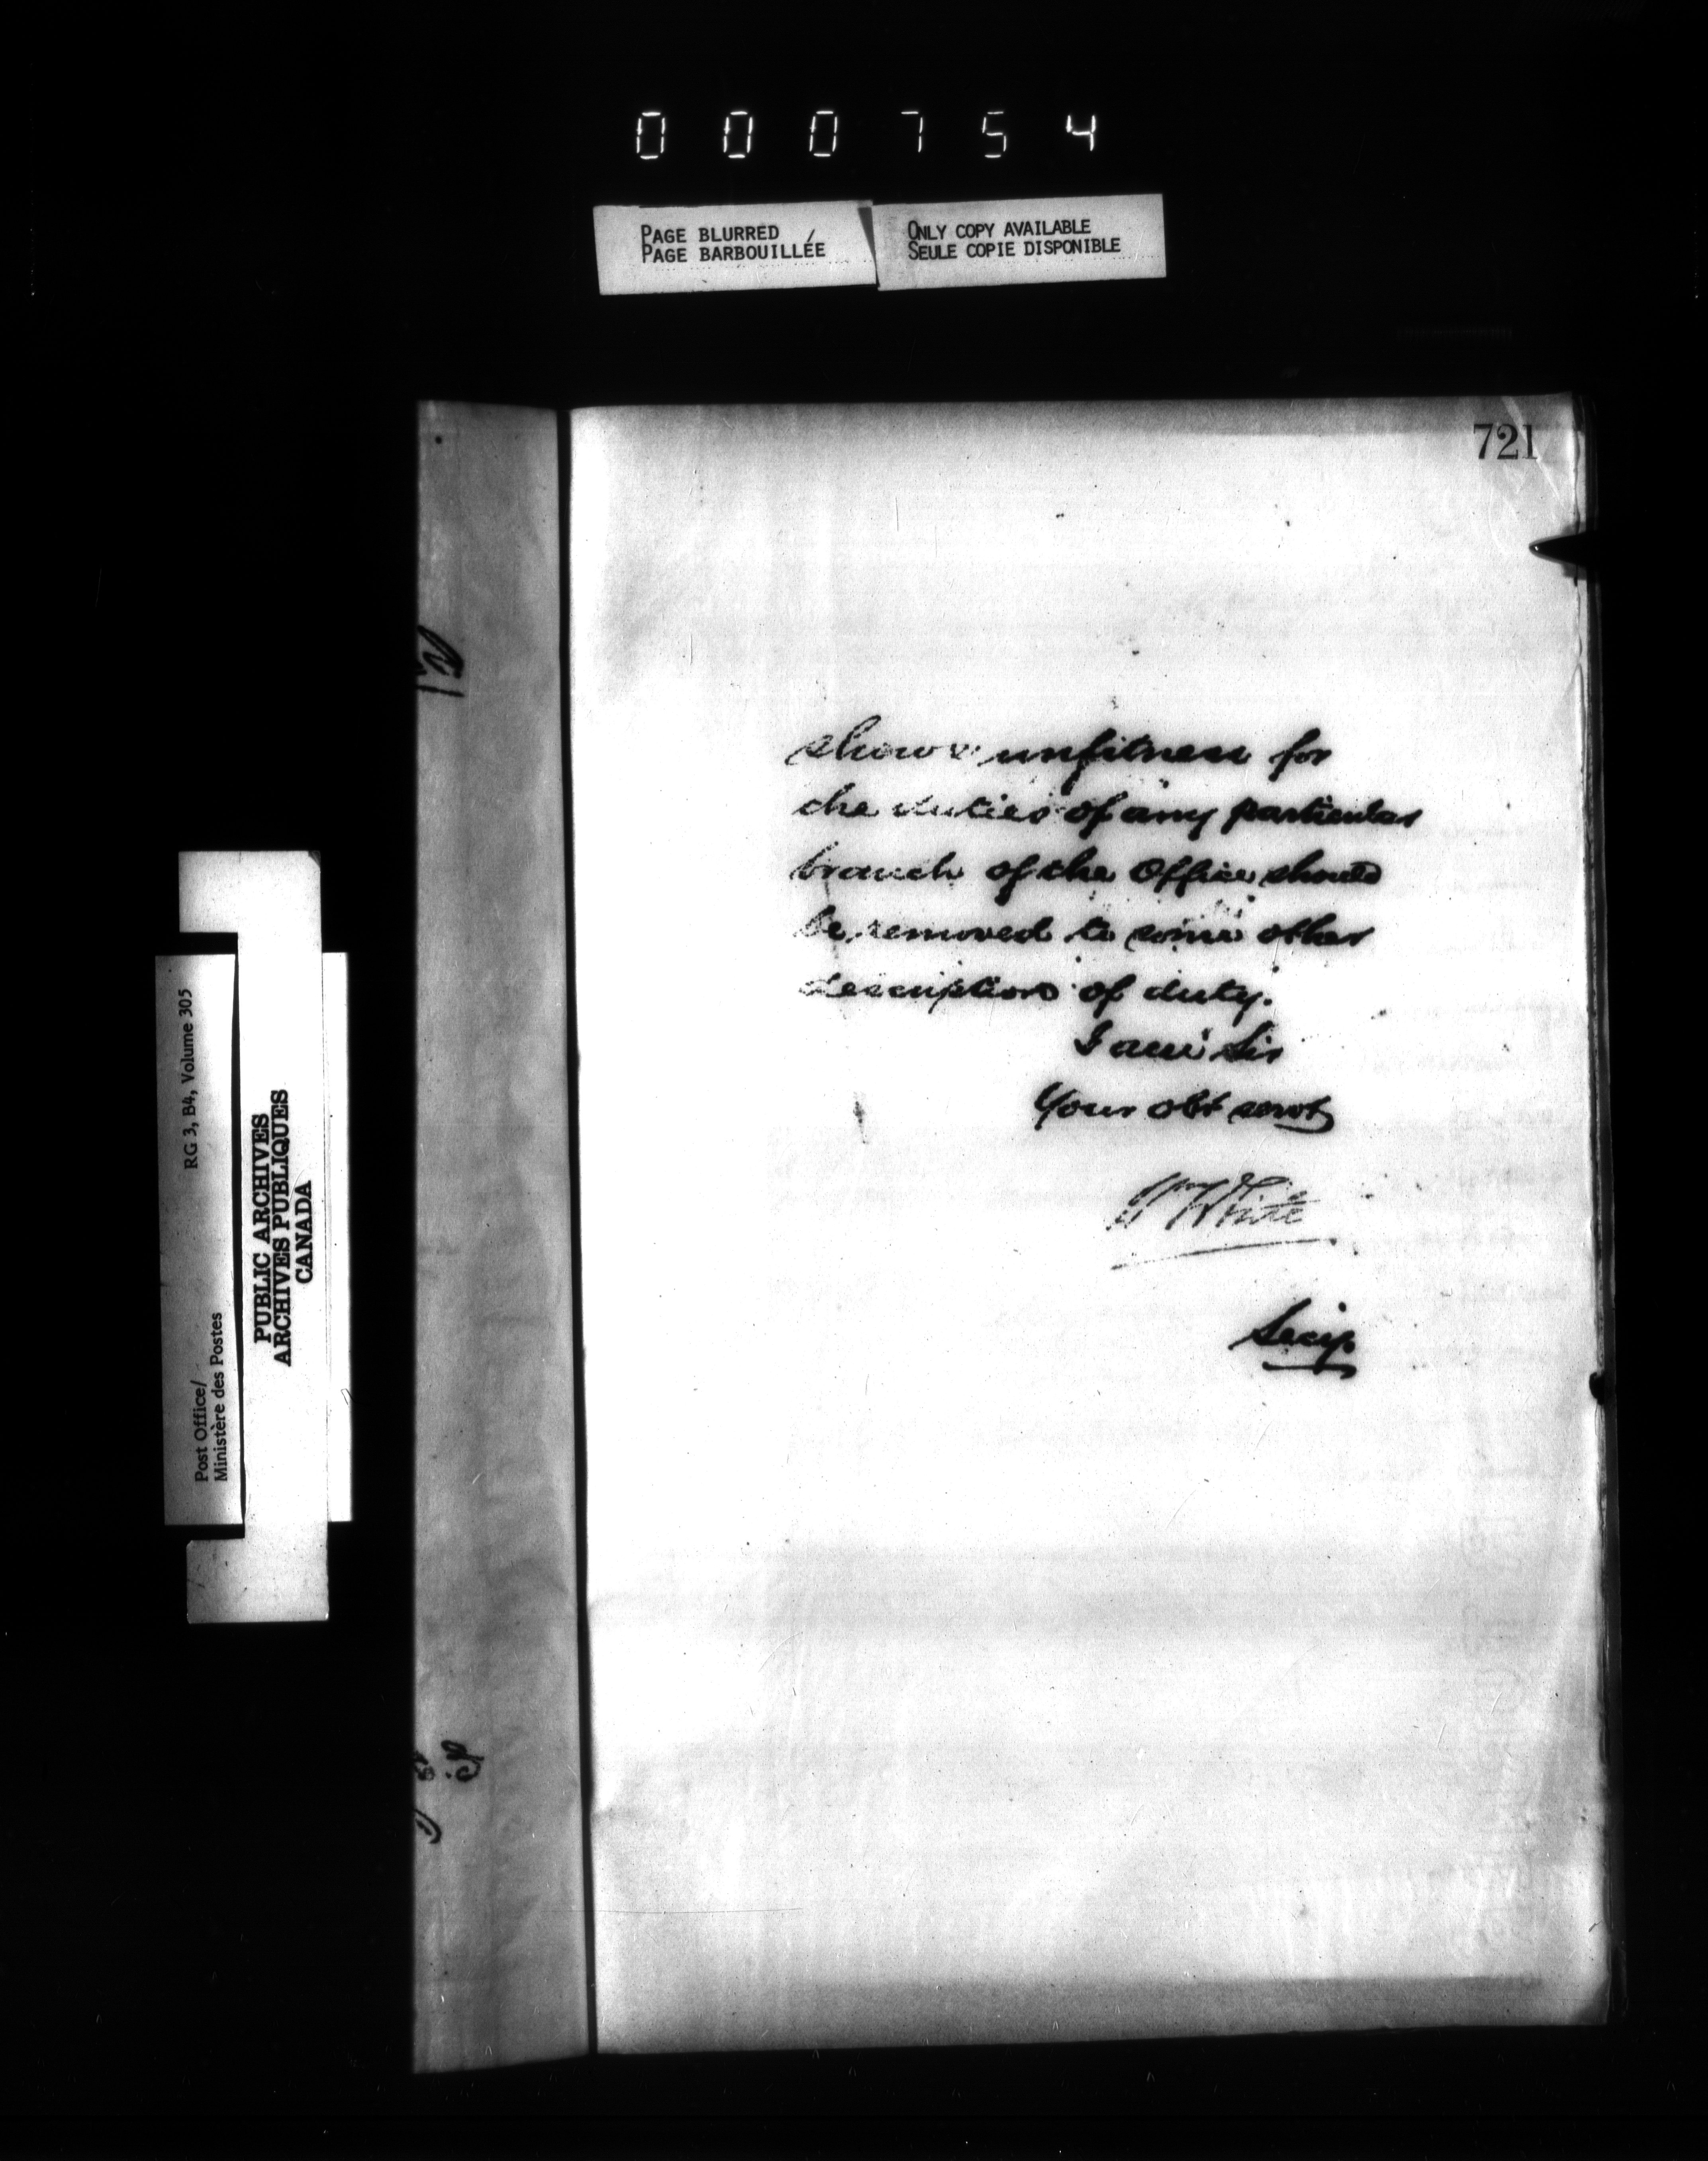 000754
PAGE BLURRED
PAGE BARBOUILLÉE
ONLY COPY AVAILABLE
SEULE COPIE DISPONIBLE
721
shows unfitness for
the duties of any particular
branch of the Office should
be removed to some other
description of duty.
I am Sir
Your obt servt
Wm White
Secy.
RG 3, B4, Volume 305
Post Office/
Ministère des Postes
PUBLIC ARCHIVES
ARCHIVES PUBLIQUES
CANADA